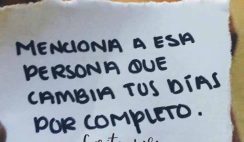 MENCIONA A ESA
PERSONA QUE
CAMBIA TUS DÍAS
POR COMPLETO.